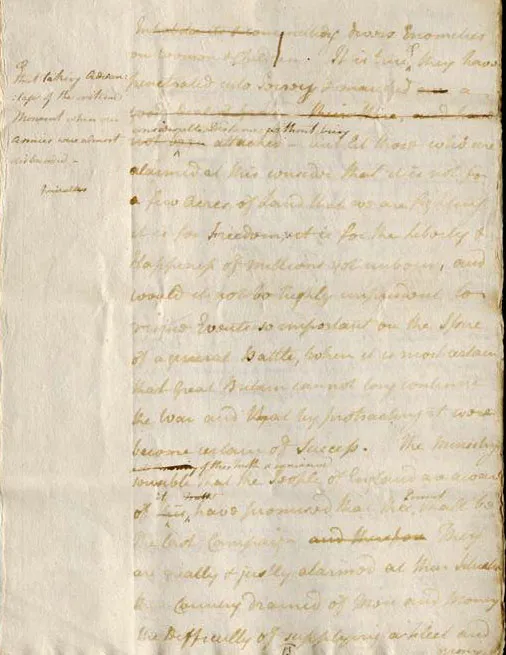 divers Enormities
on Women & Children. It is true, they have
penetrated into & a
considerable distance without being
attacked - but let those who are
alarmed at this consider that it is not for
a few acres of Land that we are fighting
it is for Freedom, it is for the Liberty &
Happiness of millions yet unborn, and
would it not be highly imprudent to
Events so important on the
of a general Battle, when it is most certain
that Great Britain cannot long continue
the War and that by protracting it we
become certain of Success. The Ministry
of this truth &
sensible that the People of England are aware
of it, have promised that this shall be
the last Campaign and therefore They
are greatly & justly alarmed at their Situation
Country drained of Men and Money
the Difficulty of supplying a Fleet and
that taking Advan
-tage of the critical
Moment when our
Armies were almost
disbanded -